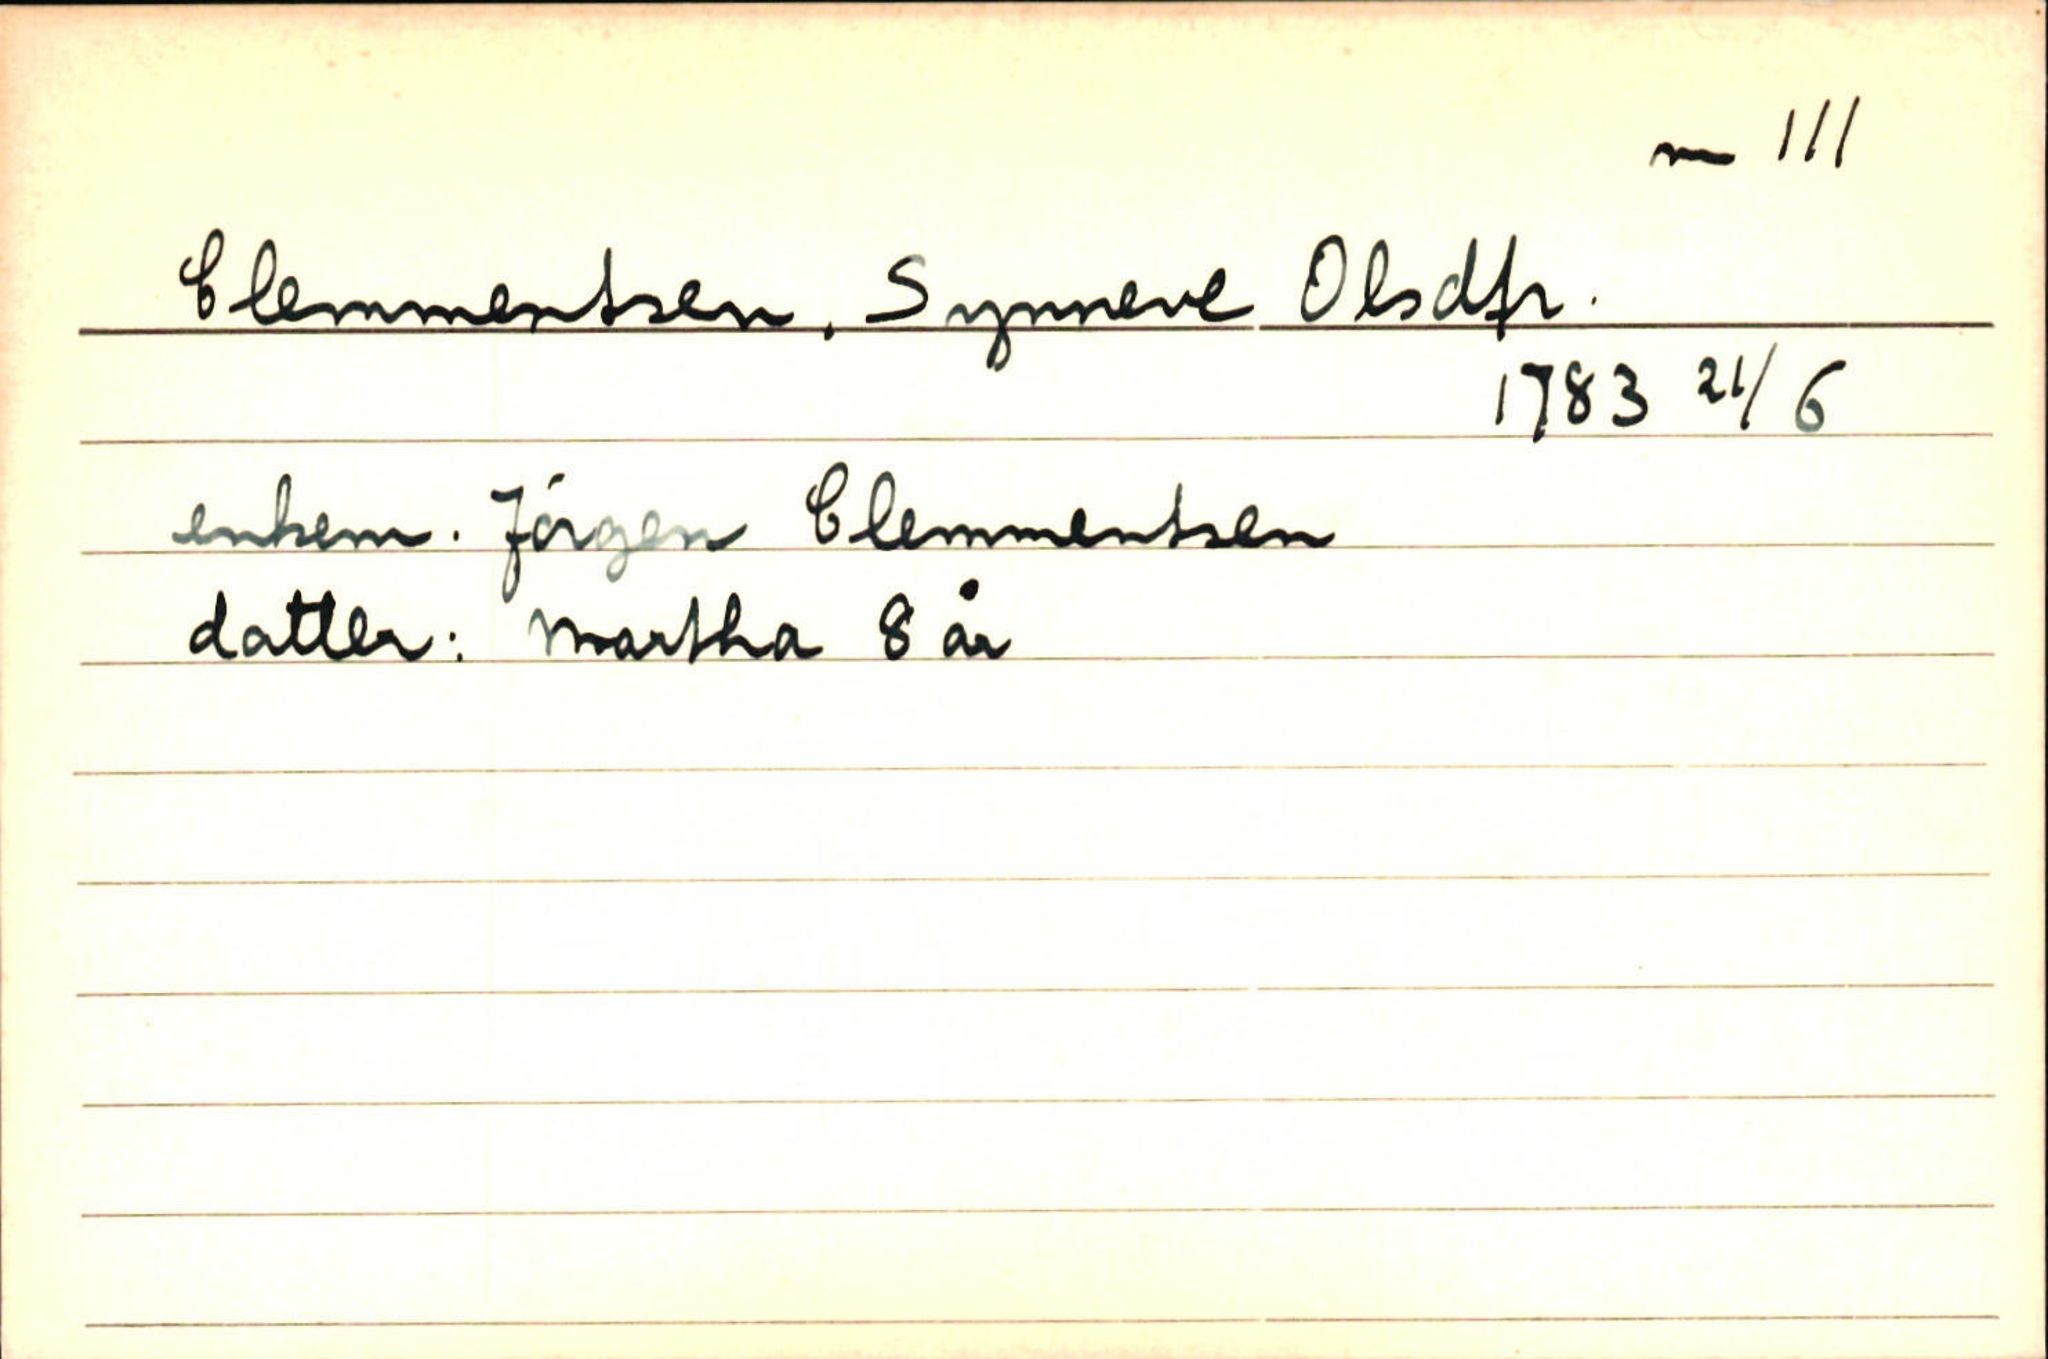 m 111
Clemmentsen, Synneve Olsdtr.
1783 21/6
enkem. Jörgen Clemmentsen
datter: Martha 8 år